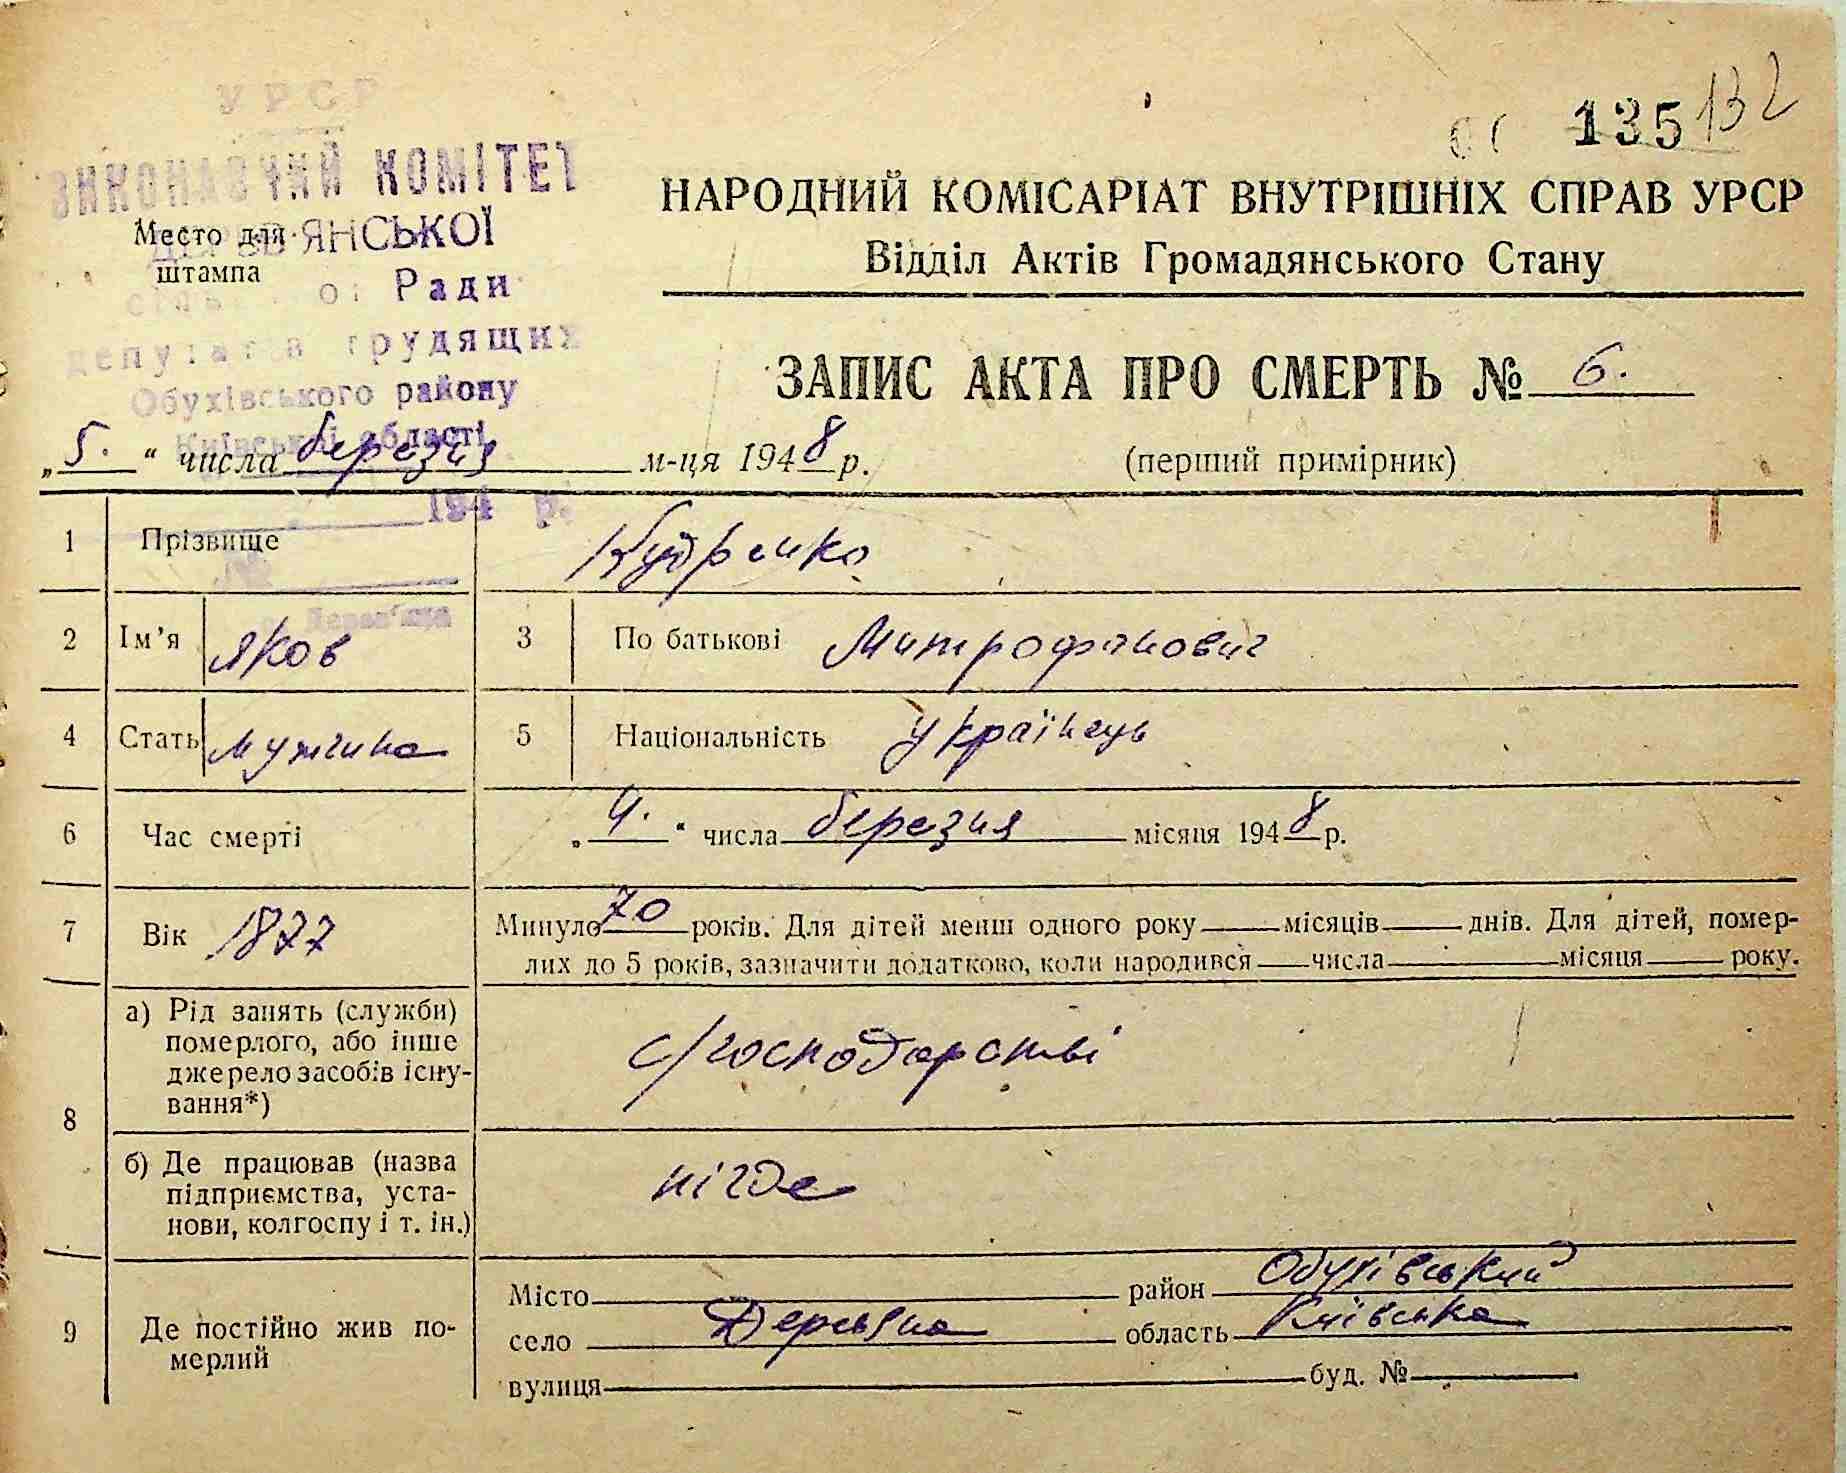 УРСР
ВИКОНАВЧИЙ КОМІТЕТ
ДЕРЕВ'ЯНСЬКОЇ
Место для
штампа
сільської Ради
депутатів трудящих
Обухівського району
Київської області
194 р.
№
135 132
НАРОДНИЙ КОМІСАРІАТ ВНУТРІШНІХ СПРАВ УРСР
Відділ Актів Громадянського Стану
ЗАПИС АКТА ПРО СМЕРТЬ № 6.
„5.“ числа березня м-ця 1948 р.
(перший примірник)
1 Прізвище Кудренко
2 Ім’я Яков 3 По батькові Митрофанович
4 Стать мужчина 5 Національність українець
6 Час смерті „4.“ числа березня місяця 1948 р.
7 Вік 1877 Минуло 70 років. Для дітей менш одного року місяців днів. Для дітей, помер-
лих до 5 років, зазначити додатково, коли народився числа місяця року.
8
а) Рід занять (служби)
померлого, або інше
джерело засобів існу-
вання*)
с/господарстві
б) Де працював (назва
підприємства, уста-
нови, колгоспу і т. ін.)
нігде
9 Де постійно жив по-
мерлий
Місто район Обухівський
село Деревяна область Київська
вулиця буд. №